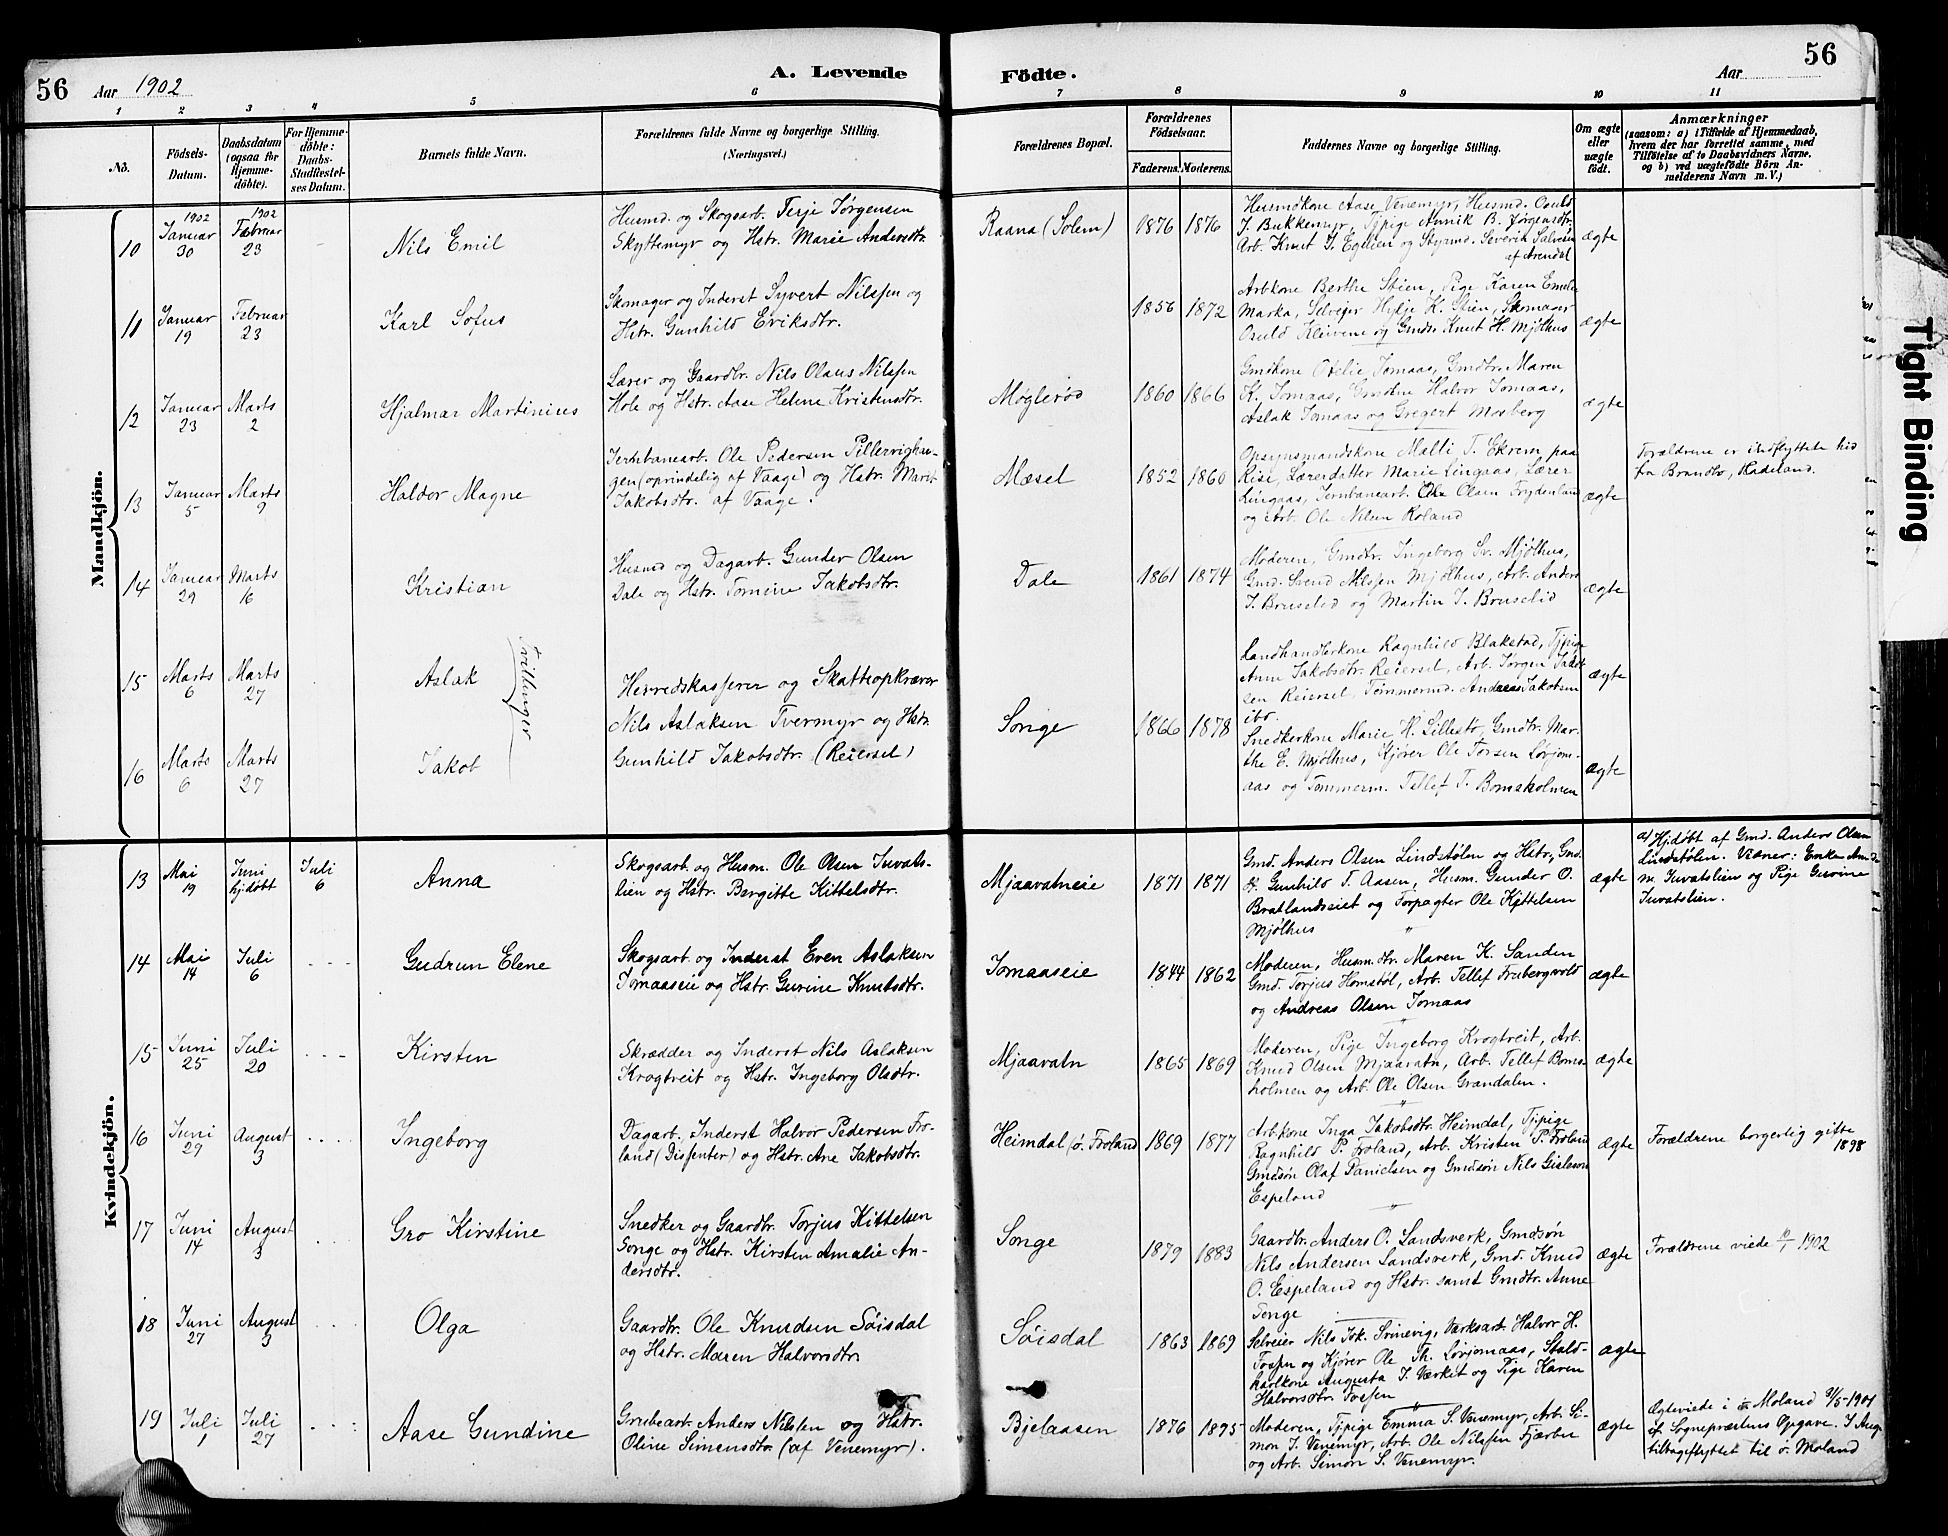 56 Aar 1902 A. Levende
Födte. Aar 56
1 2 3 4 5 6 7 8 9 10 11
No.
Födsels-
Datum.
Daabsdatum
(ogsaa for
Hjemme-
döbte).
For Hjemme-
döbte:
Daabs-
Stadfæstel-
ses Datum.
Barnets fulde Navn.
Forældrenes fulde Navne og borgerlige Stilling.
(Næringsvei.)
Forældrenes Bopæl.
Forældrenes
Födselsaar.
Faderens. Moderens.
Faddernes Navne og borgerlige Stilling.
Om ægte
eller
uægte
födt.
Anmærkninger
(saasom: a) i Tilfælde af Hjemmedaab,
hvem der har forrettet samme, med
Tilföielse af to Daabsvidners Navne,
og b) ved uægtefödte Börn An-
melderens Navn m. V.)
Mandkjön.
10
1902
Januar
30
1902
Februar
23
Nils Emil
Husmd. og Skogsarb. Terje Jørgensen
Skyttemyr og Hstr. Marie Andersdtr.
Raana (Solem)
1876 1876
Husmdkone Aase Venemyr, Husmd. Osuld
J. Bukkemyr, Tjpige Annik B. Jørgensdtr.
Arb. Knut J. Egelien og Styrmd. Severin Salvesen
af Arendal
ægte
11
Januar
19
Februar
23
Karl Sofus
Skomager og Inderst Syvert Nilssen og
Hstr. Gunhild Eriksdtr.
1856 1872
Arbkone Berthe Stien, Pige Karen Emelie
Marka, Selveier Hylje K. Stien, Skomager
Osuld Kleivene og Gmdr. Knut H. Mjølhus
ægte
12
Januar
23
Marts
2
Hjalmar Martinius
Lærer og Gaardbr. Nils Olaus Nilssen
Hole og Hstr. Aase Helene Kristensdtr.
Møglerød
1860 1866
Gmdkone Otelie Tomaas, Gmdtr. Maren
K. Tomaas, Gmdsøn Halvor Tomaas,
Aslak Tomaas og Gregert Mosberg
ægte
13
Januar
5
Marts
9
Haldor Magne
Jernbanearb. Ole Pedersen Pillervighau-
gen (oprindelig af Vaage) og Hstr. Marit
Jakobsdtr. af Vaage.
Mæsel
1852 1860
Opsynsmandskone Malli T. Ekrem, paa
Rise, Lærerdatter Marie Lingaas, Lærer
Lingaas, Jernbanearb. Ole Olsen Frydenlund
og Arb. Ole Nilsen Roland
ægte
Forældrene er indflyttede hid
fra Brandbo, Hadeland.
14
Januar
29
Marts
16
Kristian
Husmd og Dagarb. Gunder Olsen
Dale og Hstr. Tomine Jakobsdtr.
Dale
1861 1874
Moderen, Gmdtr. Ingeborg Sv. Mjølhus,
Gmd. Svend Nilssen Mjølhus, Arb. Anders
J. Bruselid og Martin J. Bruselid
ægte
15
Marts
6
Marts
27
Aslak
Tvillinger
Herredskasserer og Skatteopkræver
Nils Aslaksen Tvermyr og Hstr.
Gunhild Jakobsdtr. (Reiersel)
Songe
1866 1878
Landhandlerkone Ragnhild Blakstad, Tjpige
Anne Jakobsdtr. Reiersel, Arb. Jørgen Jakob
sen Reiersel, Tømmermd. Andreas Jakobsen
ibd.
ægte
16
Marts
6
Marts
27
Jakob
Snedkerkone Marie H. Lillestø, Gmdtr. Mar-
the E. Mjølhus, Kjører Ole Torsen Lørjom-
aas og Tømmerm. Tellef T. Bomsholmen
ægte
Kvindekjön.
13
Mai
19
Juni
hjdøbt
Juli
6
Anna
Skogsarb. og Husm. Ole Olsen Juvats-
lien og Hstr. Bergitte Kittelsdtr.
Mjaavatneie
1871 1871
Gmd. Anders Olsen Lindstølen og Hstr, Gmd.
K. Gunhild T. Aasen, Husm. Gunder O.
Bratlandseiet og Forpagter Ole Kittelsen
Mjølhus
ægte
a) Hjdøbt af Gmd. Anders Olsen
Lindstølen. Vidner: Enke Anne
M. Juvatslien og Pige Gurine
Juvatslien.
14
Mai
14
Juli
6
Gudrun Elene
Skogsarb. og Inderst Even Aslaksen
Tomaaseie og Hstr. Gurine Knutsdtr.
Tomaaseie
1844 1862
Moderen, Husm.dtr. Maren K. Sanden
Gmd. Torjus Homstøl, Arb. Tellef Frubergvold
og Andreas Olsen Tomaas
ægte
15
Juni
25
Juli
20
Kirsten
Skrædder og Inderst Nils Aslaksen
Krogtveit og Hstr. Ingeborg Olsdtr.
Mjaavatn
1865 1869
Moderen, Pige Ingeborg Krogtveit, Arb.
Knud Olsen Mjaavatn, Arb. Tellef Boms-
holmen og Arb. Ole Olsen Grandalen.
ægte
16
Juni
29
August
3
Ingeborg
Dagarb. Inderst Halvor Pedersen Fro-
land (Dissenter) og Hstr. Ane Jakobsdtr.
Heimdal (ø. Froland
1869 1877
Arbkone Inga Jakobsdtr. Heimdal, Tjpige
Ragnhild P. Froland, Arb. Kristen P. Froland
Gmdsøn Olaf Danielsen og Gmdsøn Nils Gisleson
Espeland
ægte
Forældrene borgerlig gifte
1898
17
Juni
14
August
3
Gro Kirstine
Snedker og Gaardbr. Torjus Kittelsen
Songe og Hstr. Kirsten Amalie An-
dersdtr.
Songe
1879 1883
Gaardbr. Anders O. Landsverk, Gmdsøn
Nils Andersen Landsverk, Gmd. Knud
O. Espeland og Hstr. samt Gmdtr. Anne
Songe
ægte
Forældrene viede 10/1 1902
18
Juni
27
August
3
Olga
Gaardbr. Ole Knudsen Søisdal
og Hstr. Maren Halvorsdtr.
Søisdal
1863 1869
Selveier Nils Jak. Svinevig, Værksarb. Halvor H.
Fossen og Kjører Ole Th. Lørjomaas, Stald-
karlkone Augusta J. Værket og Pige Karen
Halvorsdtr. Fossen
ægte
19
Juli
1
Juli
27
Aase Gundine
Grubearb. Anders Nilsen og Hstr.
Oline Simensdtr (af Venemyr).
Bjelaasen
1876 1895
Moderen, Tjpige Emma S. Venemyr, Arb. Si-
mon J. Venemyr, Arb. Ole Nilssen Fjærbu
og Arb. Simon S. Venemyr.
ægte
Ægteviede i ø. Moland 31/5-1901
ef. Sogneprestens Opgave. I Aug.
tilbageflyttet til ø. Moland
Tight Binding